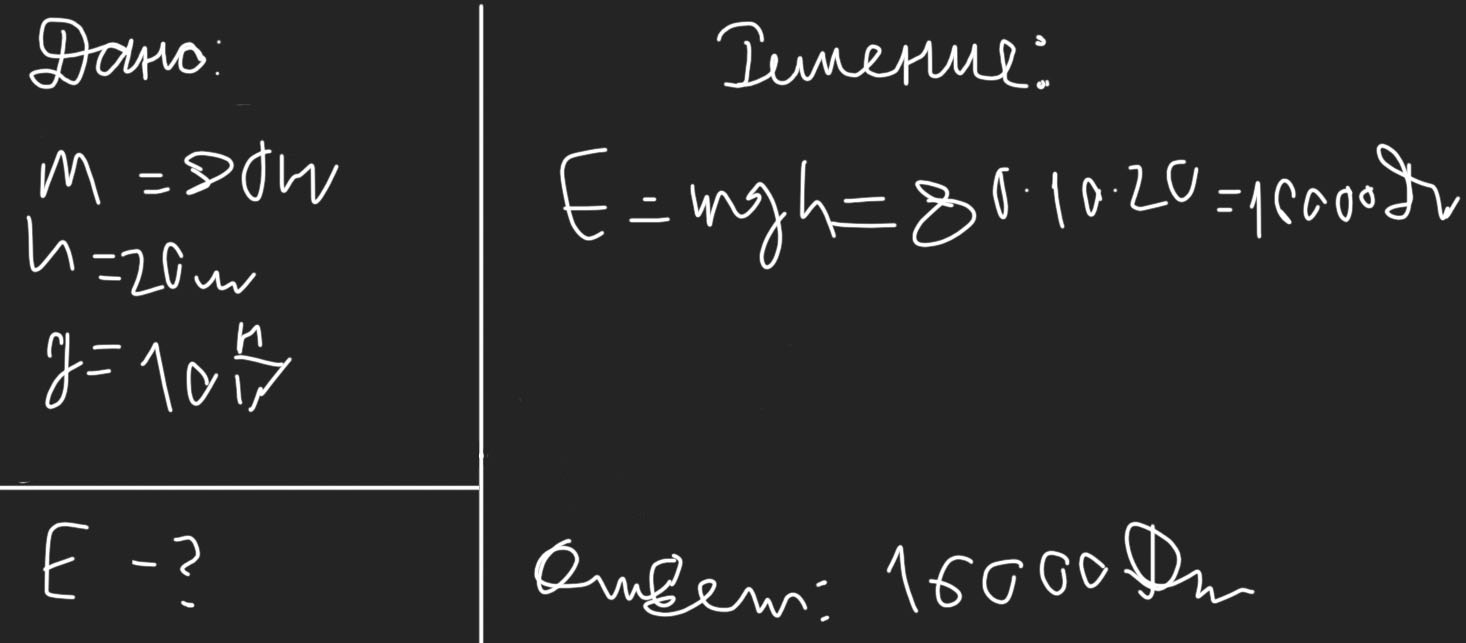 Дано:
m = 80 кг
h = 20 м
g = 10 Н/кг
E - ?
Решение:
E = mgh = 80 · 10 · 20 = 16000 Дж
Ответ: 16000 Дж